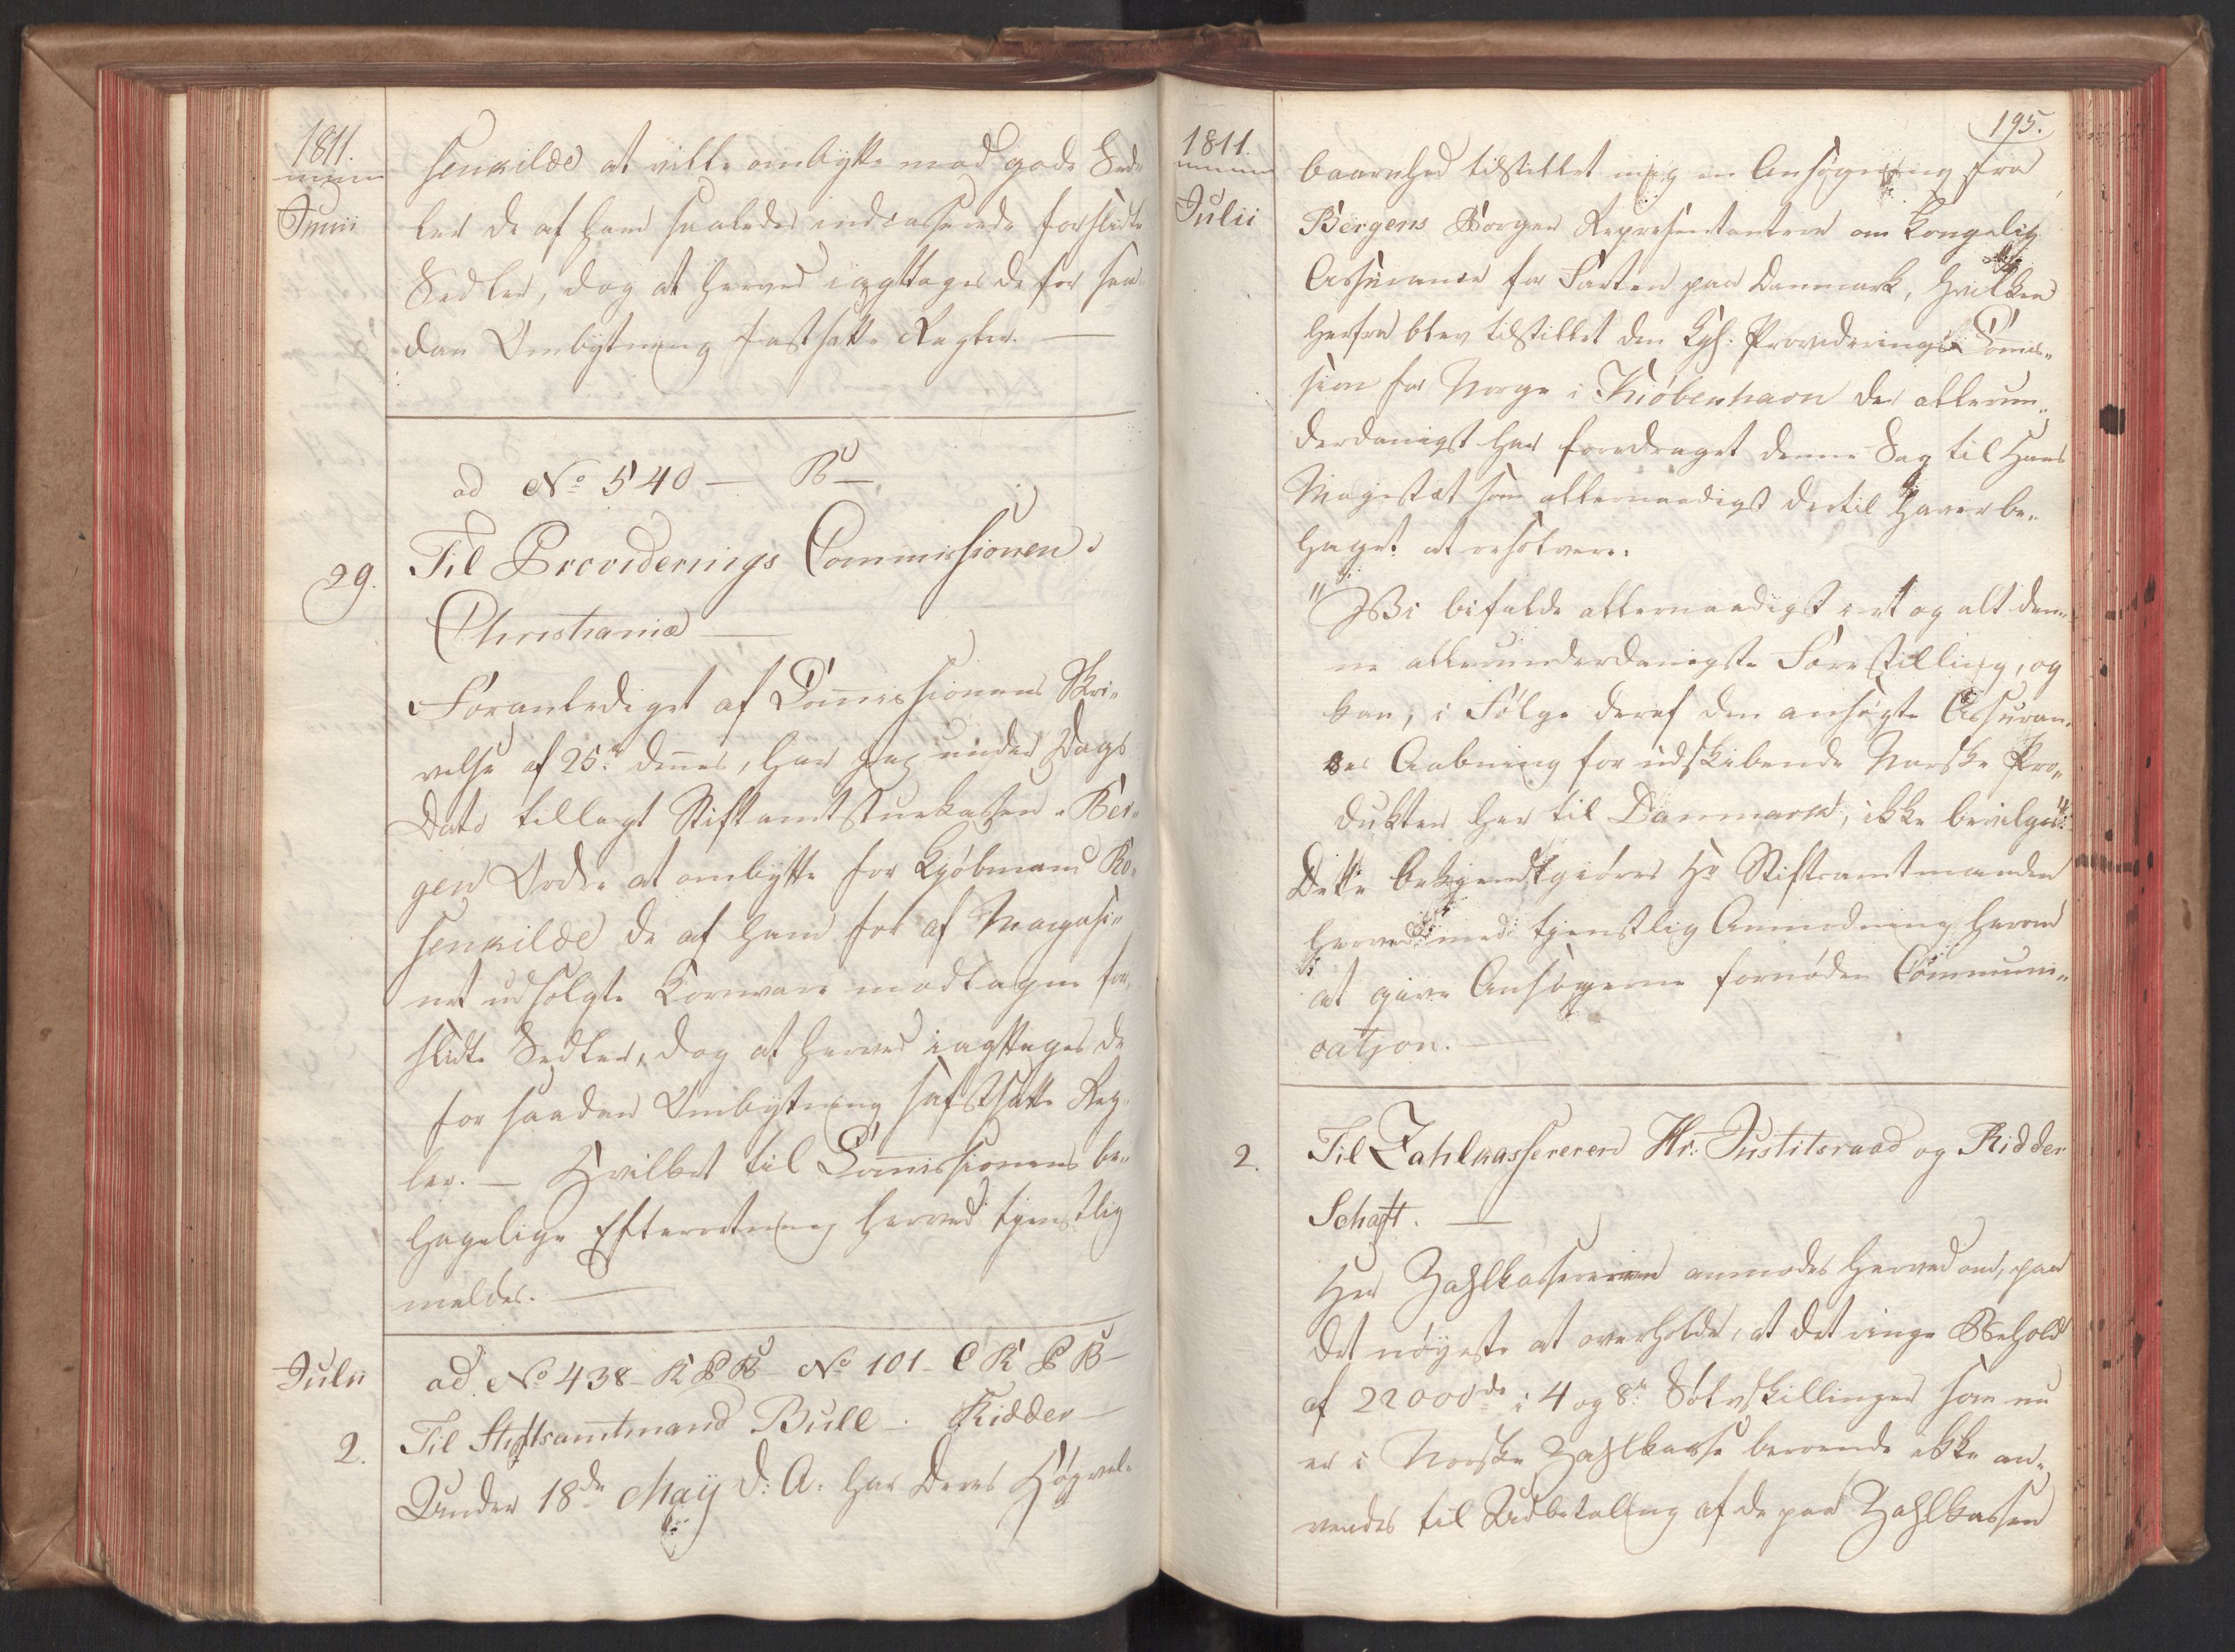 1811.
Junii
senkilde at ville ombytte mod gode Sed-
ler de af ham saaledes indcasserede forslidte
Sedler, dog at herved iagttages de for saa-
dan Ombytning fastsatte Regler. —
ad No 540 — B —
29.
Til Providerings Commissionen i
Christiania —
Foranlediget af Commissionens Skri-
velse af 25de dennes, har jeg under Dags
Dato tillagt Stiftamtstuekassen i Ber-
gen Ordre at ombytte for Kjøbmand Ro-
senkilde de af ham for af Magasi-
net udsolgte Kornvare modtagne for-
slidte Sedler, dog at herved iagttages de
for saadan Ombytning fastsatte Reg-
ler. — Hvilket til Commissionens be-
hagelige Efterretning herved tjenstlig
meldes. —
Julii
ad No 438 – K P K – No 101 – C K P B –
2.
Til Stiftsamtmand Bull – Ridder –
Under 18de Maÿ d: A: har Deres Høyvel-
195.
1811.
Julii
baarenhed tilstillet mig en Ansøgning fra
Bergens Borger Repræsentantere om Kongelig
Assurance for Farten paa Danmark, hvilken
herfra blev tilstillet den Kgl: Provideringscommis-
sion for Norge i Kiøbenhavn der allerun-
derdanigst har foredraget denne Sag til Hans
Majestæt som allernaadigst dertil haver be-
haget at resolvere:
"Vi bifalde allernaadigst i et og alt den-
ne allerunderdanigste Forestilling, og
kan, i Følge deraf den ansøgte Assuran-
ces Aabning for udskibende Norske Pro-
dukter her til Danmark, ikke bevilges."
Dette bekjendtgiøres Hr Stiftsamtmanden
herved med tjenstlig Anmodning herom
at give Ansøgerne fornøden Communi-
cation. —
2.
Til Zahlkassereren Hr: Justitsraad og Ridder
Schaft. —
Herr Zahlkassereren anmodes herved om, paa
det nøyeste at overholde, at det ringe Behold
af 22000 rd i 4 og 8 s: Sølvskillinger som nu
er i Norske Zahlkasse beroende ikke an-
vendes til Udbetaling af de paa Zahlkassen